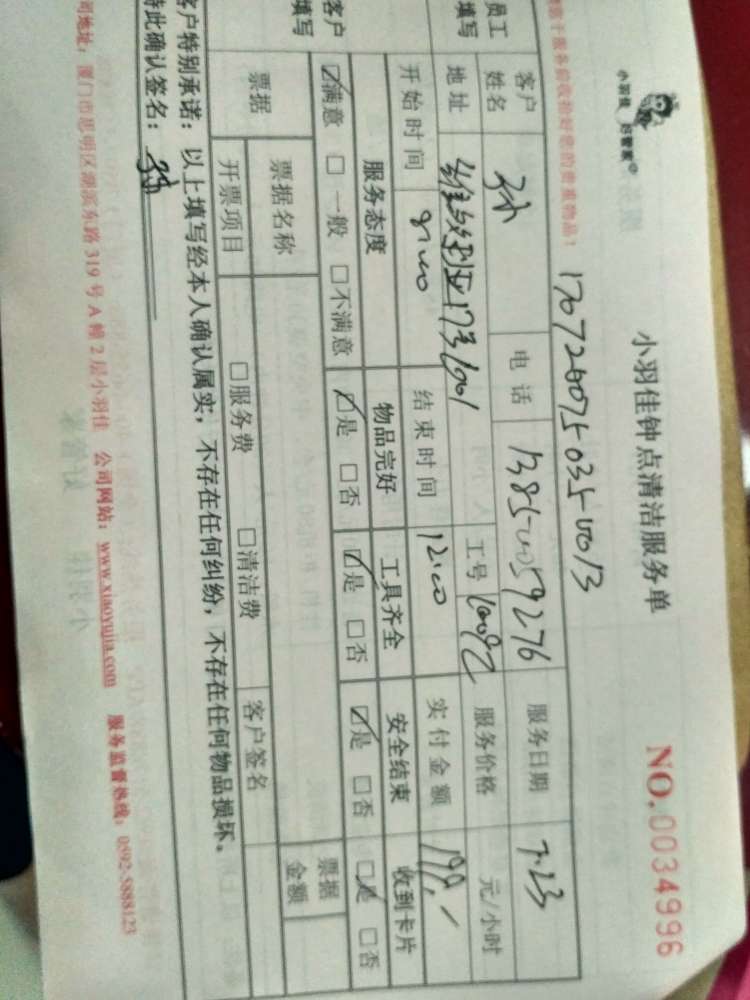 小羽佳 好管家®
小羽佳钟点清洁服务单
NO.0034996
1707260750350013
员工填写
客户姓名 电话 服务日期 7.23
地址 173 1001 工号 服务价格 元/小时
开始时间 8:00 结束时间 12:00 实付金额
客户填写
服务态度 物品完好 工具齐全 安全结束 收到卡片
☑满意 □一般 □不满意 ☑是 □否 ☑是 □否 ☑是 □否 ☑是 □否
票据 票据名称 票据金额
开票项目 □服务费 □清洁费 客户签名
客户特别承诺:以上填写经本人确认属实,不存在任何纠纷,不存在任何物品损坏。
特此确认签名:
司地址:厦门市思明区湖滨东路319号A幢2层小羽佳 公司网站:www.xiaoyujia.com 服务监督热线:0592-5888123